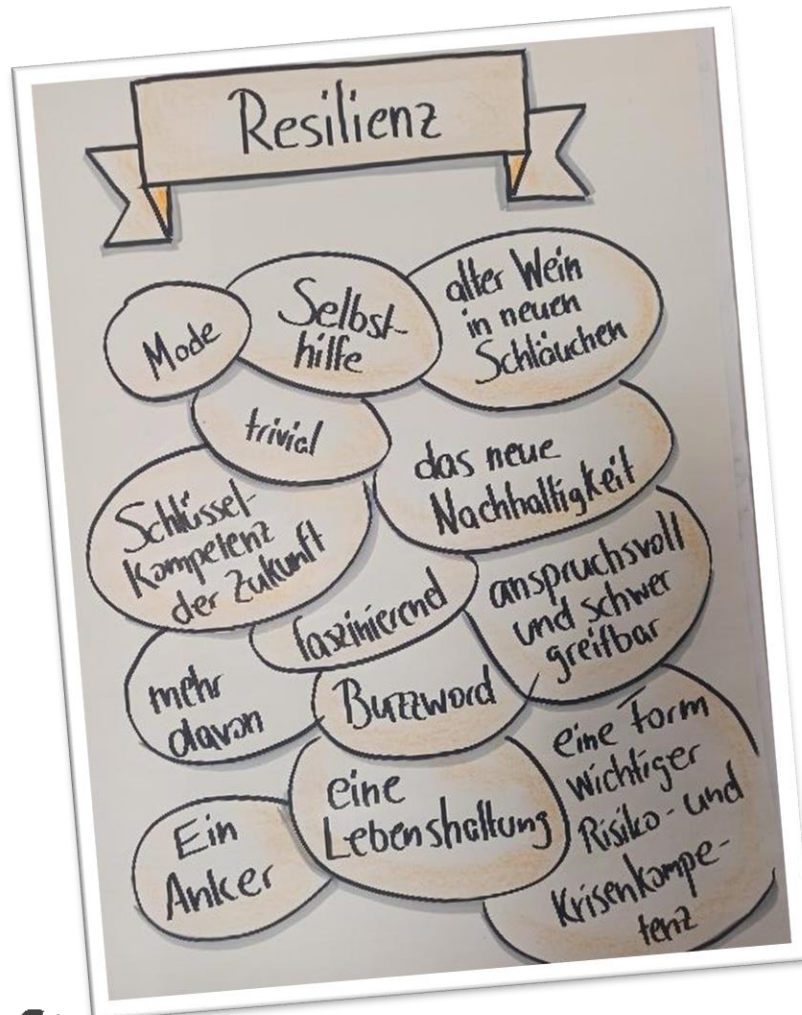 Resilienz
Mode
Selbst-
hilfe
alter Wein
in neuen
Schläuchen
trivial
das neue
Nachhaltigkeit
Schlüssel-
kompetenz
der Zukunft
faszinierend
anspruchsvoll
und schwer
greifbar
mehr
davon
Buzzword
eine Form
wichtiger
Risiko- und
Krisenkompe-
tenz
eine
Lebenshaltung
Ein
Anker